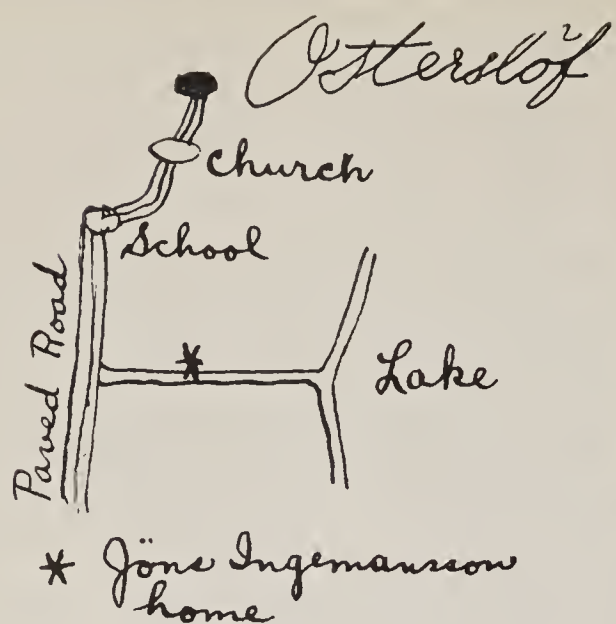 Osterslöf
church
School
Paved Road
Lake
* Jöns Ingemansson
home